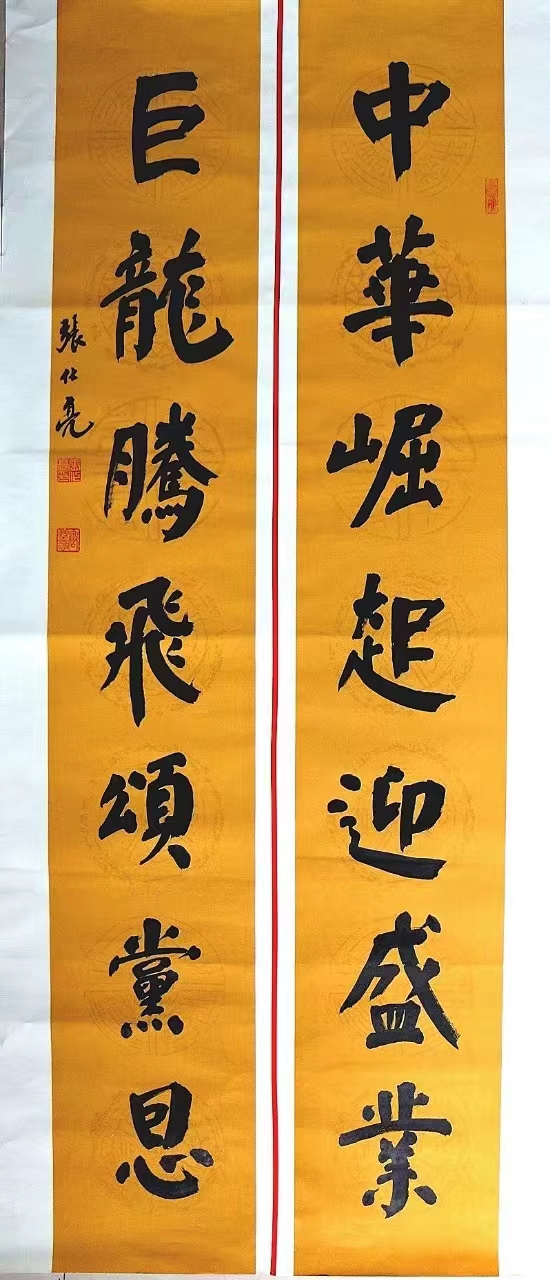 中華崛起迎盛業
巨龍騰飛頌黨恩
張仕亮